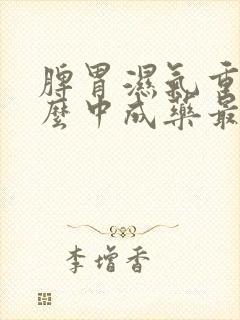 脾胃濕氣重
麼中成藥最
李增香